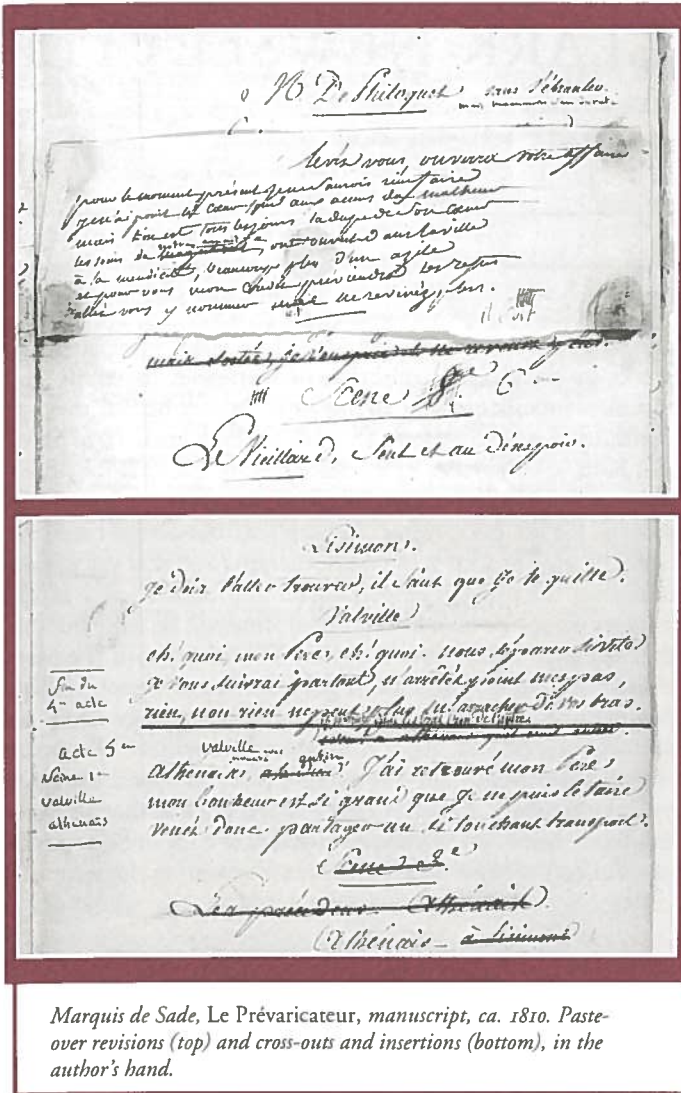 De Philoquet sans s'ébranler
levés vous, ouvrira votre affaire
pour le moment présent je ne saurois rien faire
je n'ai point le cœur fermé aux accens du malheur
mais on est tous les jours la dupe de son cœur
les soins de ont ouvert dans la ville
à la mendicité, beaucoup plus d'un azile
et pour vous mon crédit préviendra les refus
allés vous y nommer ne revenés plus.
il sort
mais sortés, je vous prie et ne revenés plus.
Scene 8e 6
Le Vieillard, Seul et au désespoir.
Lisimon.
je dois l'aller trouver, il faut que je te quitte.
Valville
eh! quoi mon Pere, eh! quoi. nous séparer si vite
je vous suivrai partout, n'arrêtés point mes pas,
rien, non rien ne peut plus m'arracher de vos bras.
fin du
4me acte
acte 5me
scène 1re
valville
athenaïs
valville
Athenaïs, J'ai retrouvé mon Pere
mon bonheur est si grand que je ne puis le taire
venés donc partager un si touchant transport.
Scene 2e
Les précédens Athénaïs
Athénaïs à Lisimon
Marquis de Sade, Le Prévaricateur, manuscript, ca. 1810. Paste-
over revisions (top) and cross-outs and insertions (bottom), in the
author's hand.